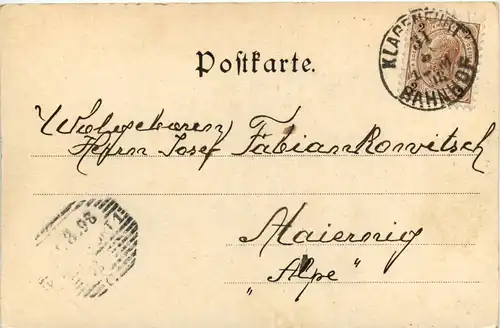 Postkarte.
KLAGENFURT
BAHNHOF
Wolgeboren
Herrn Josef Fabian Komitsch
Maiernig
"Alpe"
.8.98